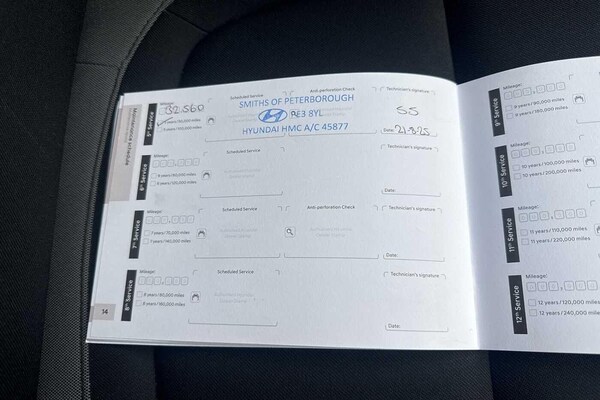 Maintenance schedule
5th Service
Mileage:
32560
Scheduled Service
Anti-perforation Check
Technician's signature
SMITHS OF PETERBOROUGH
PE3 8YL
HYUNDAI HMC A/C 45877
SS
Date: 21-8-25
6th Service
Mileage:
Scheduled Service
Technician's signature
Date:
7th Service
Mileage:
7 years/70,000 miles
7 years/140,000 miles
Scheduled Service
Anti-perforation Check
Technician's signature
Date:
8th Service
Mileage:
8 years/80,000 miles
8 years/160,000 miles
Scheduled Service
Technician's signature
Date:
14
9th Service
Mileage:
9 years/90,000 miles
9 years/180,000 miles
10th Service
Mileage:
10 years/100,000 miles
10 years/200,000 miles
11th Service
Mileage:
11 years/110,000 miles
11 years/220,000 miles
12th Service
Mileage:
12 years/120,000 miles
12 years/240,000 miles